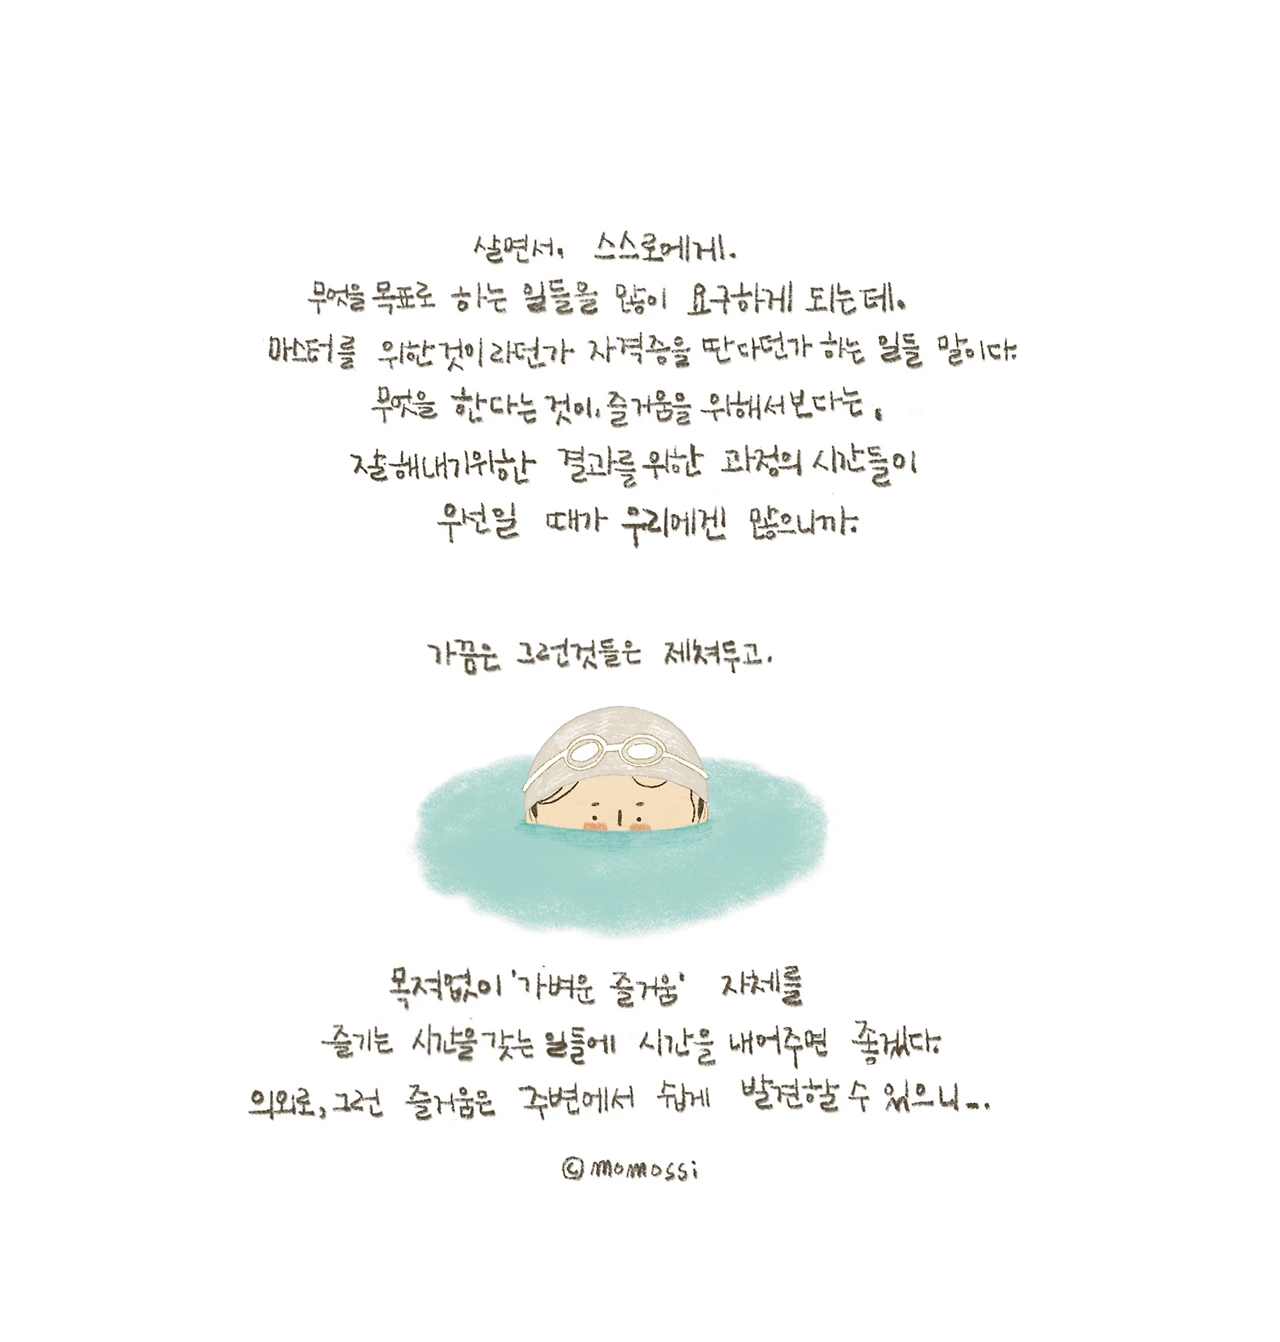 살면서, 스스로에게.
무엇을 목표로 하는 일들을 많이 요구하게 되는데.
마스터를 위한것이라던가 자격증을 딴다던가 하는 일들 말이다.
무엇을 한다는 것이, 즐거움을 위해서보다는,
잘해내기위한 결과를 위한 과정의 시간들이
우선일 때가 우리에겐 많으니까.
가끔은 그런것들은 제쳐두고.
목적없이 '가벼운 즐거움' 자체를
즐기는 시간을 갖는 일들에 시간을 내어주면 좋겠다.
의외로, 그런 즐거움은 주변에서 쉽게 발견할 수 있으니...
©momossi